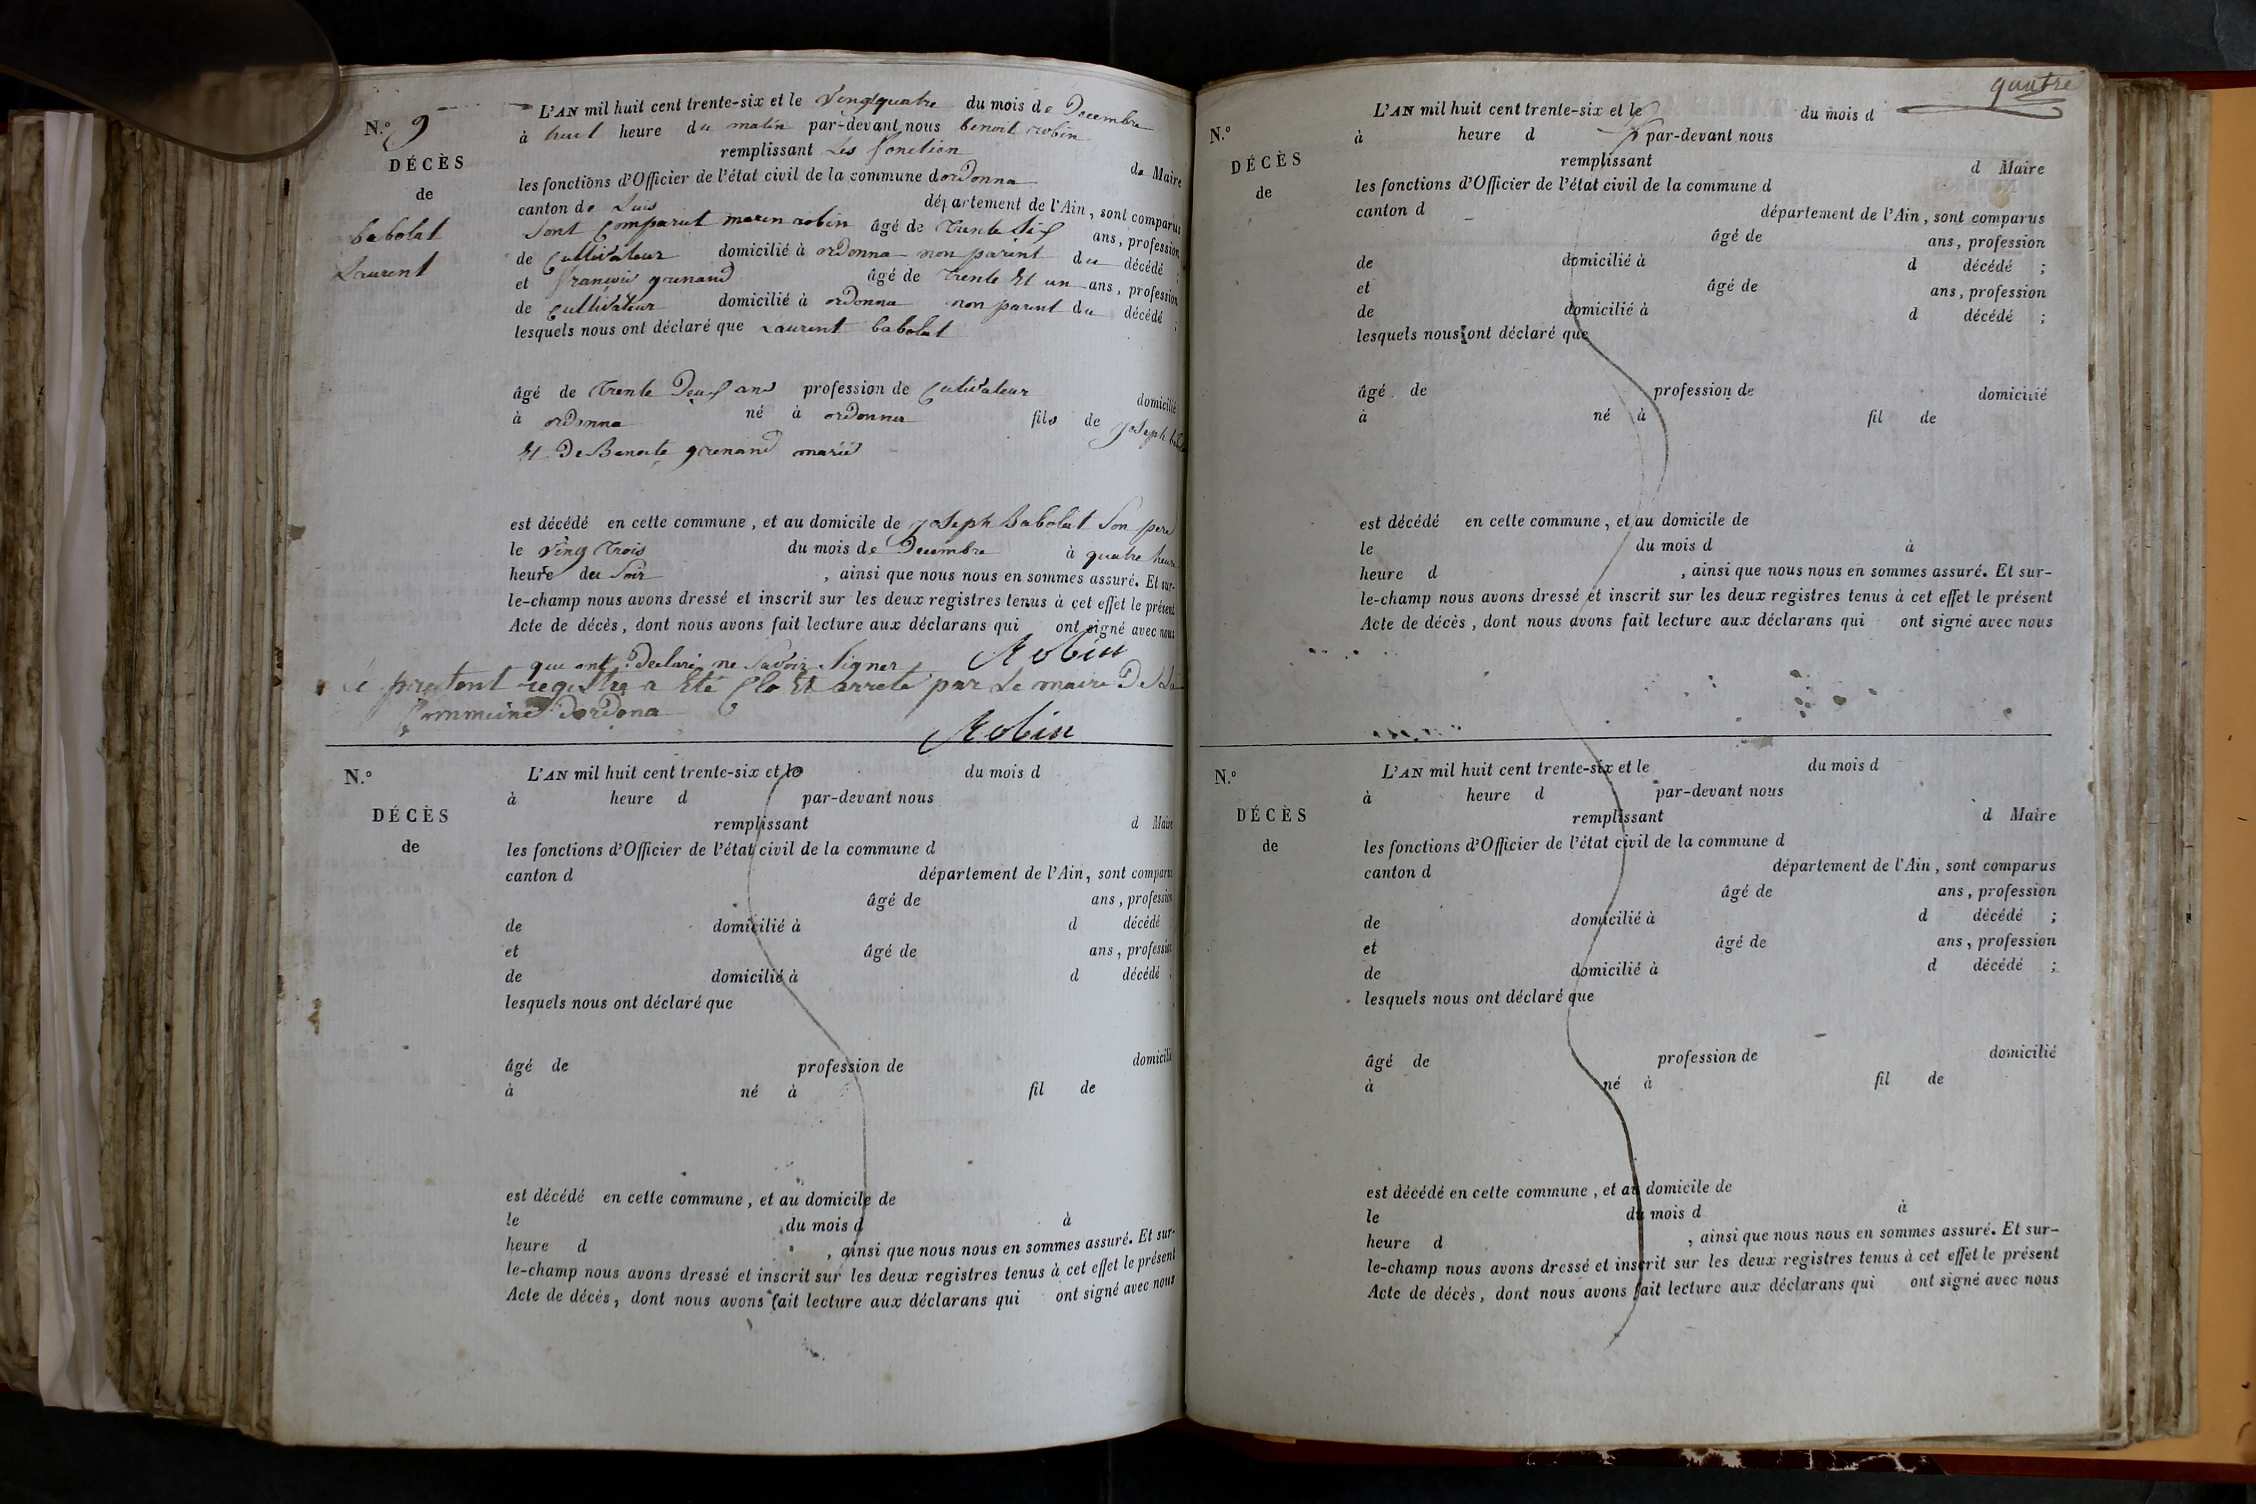 N.° 9
DÉCÈS
de
babolat
Laurent
L'AN mil huit cent trente-six et le Vengtquatre du mois de Decembre
à huit heure du matin par-devant nous benoit robin
remplissant Les fonction de Maire
les fonctions d'Officier de l'état civil de la commune dordonna
canton de Luis département de l'Ain, sont comparus
Sont Comparut marin robin âgé de Trente Six ans, profession
de Cultivateur domicilié à ordonna non parint du décédé ;
et françois grenand âgé de Trente Et un ans, profession
de Cultivateur domicilié à ordonna non parent du décédé ;
lesquels nous ont déclaré que Laurent babolat
âgé de Trente Deux ans profession de Cultivateur domicilié
à ordonna né à ordonna fils de joseph
Et De Benoite grenand mariés
est décédé en cette commune, et au domicile de joseph babolat Son pere
le Ving Trois du mois de Decembre à quatre heure
heure du Soir , ainsi que nous nous en sommes assuré. Et sur-
le-champ nous avons dressé et inscrit sur les deux registres tenus à cet effet le présent
Acte de décès, dont nous avons fait lecture aux déclarans qui ont signé avec nous
qui ont Declaré ne Savoir Signer Robin
registre a Eté Clo Et arreté par Le maire De La
Commune dordona
Robin
N.°
DÉCÈS
de
L'AN mil huit cent trente-six et le du mois d
à heure d par-devant nous
remplissant d Maire
les fonctions d'Officier de l'état civil de la commune d
canton d département de l'Ain, sont comparus
âgé de ans, profession
de domicilié à d décédé
et âgé de ans, profession
de domicilié à d décédé
lesquels nous ont déclaré que
âgé de profession de domicilié
à né à fil de
est décédé en cette commune, et au domicile de
le du mois d à
heure d , ainsi que nous nous en sommes assuré. Et sur-
le-champ nous avons dressé et inscrit sur les deux registres tenus à cet effet le présent
Acte de décès, dont nous avons fait lecture aux déclarans qui ont signé avec nous
quatre
N.°
DÉCÈS
de
L'AN mil huit cent trente-six et le du mois d
à heure d par-devant nous
remplissant d Maire
les fonctions d'Officier de l'état civil de la commune d
canton d département de l'Ain, sont comparus
âgé de ans, profession
de domicilié à d décédé ;
et âgé de ans, profession
de domicilié à d décédé ;
lesquels nous ont déclaré que
âgé de profession de domicilié
à né à fil de
est décédé en cette commune, et au domicile de
le du mois d à
heure d , ainsi que nous nous en sommes assuré. Et sur-
le-champ nous avons dressé et inscrit sur les deux registres tenus à cet effet le présent
Acte de décès, dont nous avons fait lecture aux déclarans qui ont signé avec nous
N.°
DÉCÈS
de
L'AN mil huit cent trente-six et le du mois d
à heure d par-devant nous
remplissant d Maire
les fonctions d'Officier de l'état civil de la commune d
canton d département de l'Ain, sont comparus
âgé de ans, profession
de domicilié à d décédé ;
et âgé de ans, profession
de domicilié à d décédé ;
lesquels nous ont déclaré que
âgé de profession de domicilié
à né à fil de
est décédé en cette commune, et au domicile de
le du mois d à
heure d , ainsi que nous nous en sommes assuré. Et sur-
le-champ nous avons dressé et inscrit sur les deux registres tenus à cet effet le présent
Acte de décès, dont nous avons fait lecture aux déclarans qui ont signé avec nous